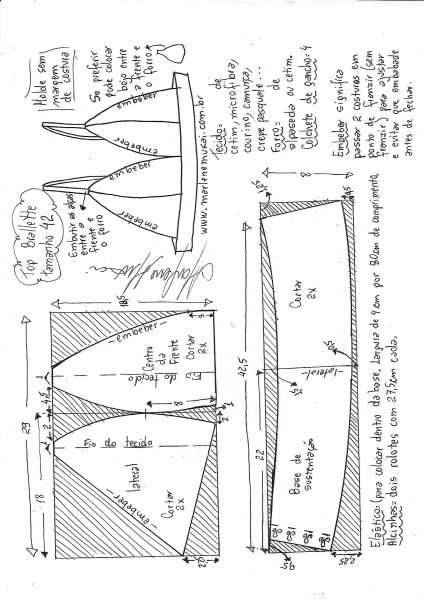 Top Brallette
tamanho 42
Molde sem
margem
de costura
Se preferir
pode colocar
bojo entre
a frente e
o forro
embeber
embeber
embeber
embeber
Embutir as alças
entre a
frente e
o forro
www.marlenemukai.com.br
Tecido: de
cetim, microfibra,
courino, camurça,
crepe pasquale...
Forro: de
alpaseda ou cetim.
Colchete de gancho: 4
Embeber significa
passar 2 costuras em
ponto de franzir (sem
franzir) para ajustar
e evitar que embabade
antes de fechar.
29
18
2
4,5
Fio do tecido
lateral
embeber
Cortar
2x
embeber
Centro
da
frente
Fio do tecido
Cortar
2x
8
42,5
22
Base de
sustentação
lateral
Cortar
2x
1,25
2,25
Elástico: (para colocar dentro da base. Largura de 4cm por 80cm de comprimento.
Alcinhas: dois rolotes com 27,5cm cada.